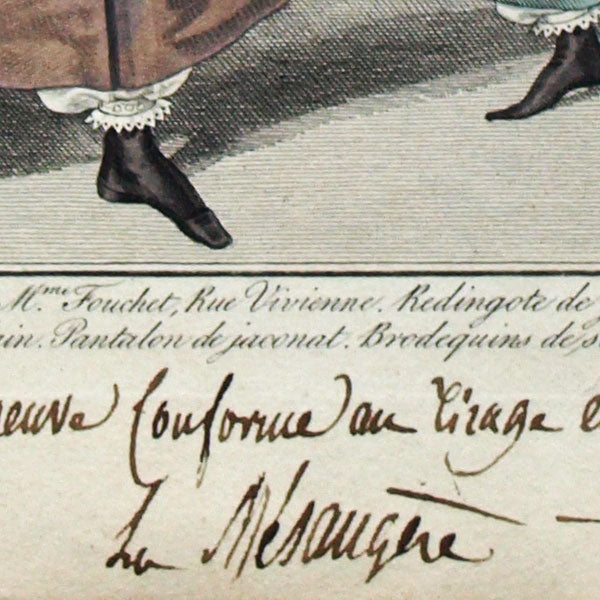 M.me Fouchet, Rue Vivienne. Redingote de
ain. Pantalon de jaconat. Brodequins de s
reuve Conforme au tirage e
La Mésangère